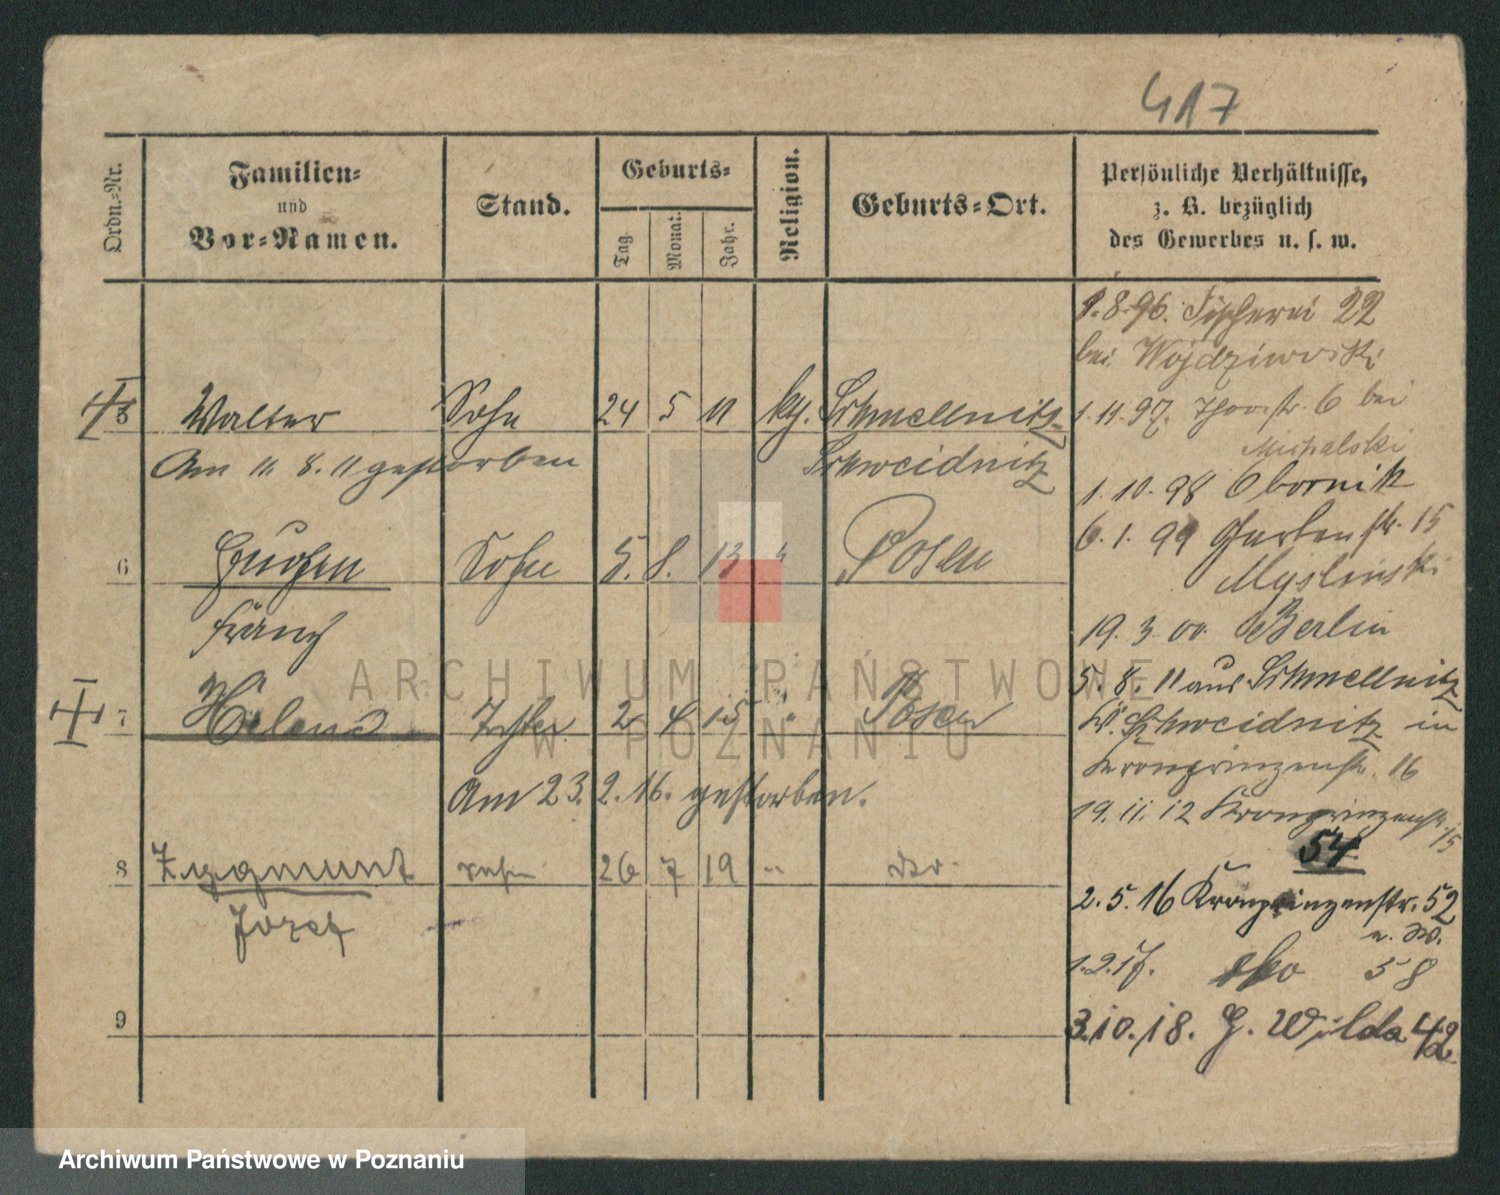 417
Ordn.-Nr.
Familien-
und
Vor-Namen.
Stand.
Geburts-
Tag.
Monat.
Jahr.
Religion.
Geburts-Ort.
Persönliche Verhältnisse,
z. B. bezüglich
des Gewerbes u. s. w.
1.8.96. Fischerei 22
bei
5 Walter Sohn 24 5 11 kth. Schmellwitz
1.11.97. 6 bei
Michalski
Am 11 8. 11 gestorben Schweidnitz
1.10.98 Obornik
6.1.99 Gartenstr. 15
Myslinski
6 Eugen Sohn 5. 8. 13 " Posen
Franz
19.3.00. Berlin
5.8.11 aus Schmellwitz
Kr. Schweidnitz in
Kronprinzenstr. 16
7 Helene Tochter 2 4 15 " Posen
Am 23. 2. 16. gestorben.
19.11.12 Kronprinzenstr.
15
54
8 Zygmunt Sohn 26 7 19 " do.
Józef
2.5.16 Kronprinzenstr. 52
1.2.17. dto 58
9
3.10.18. G. Wilda 42
ARCHIWUM PAŃSTWOWE
W POZNANIU
Archiwum Państwowe w Poznaniu